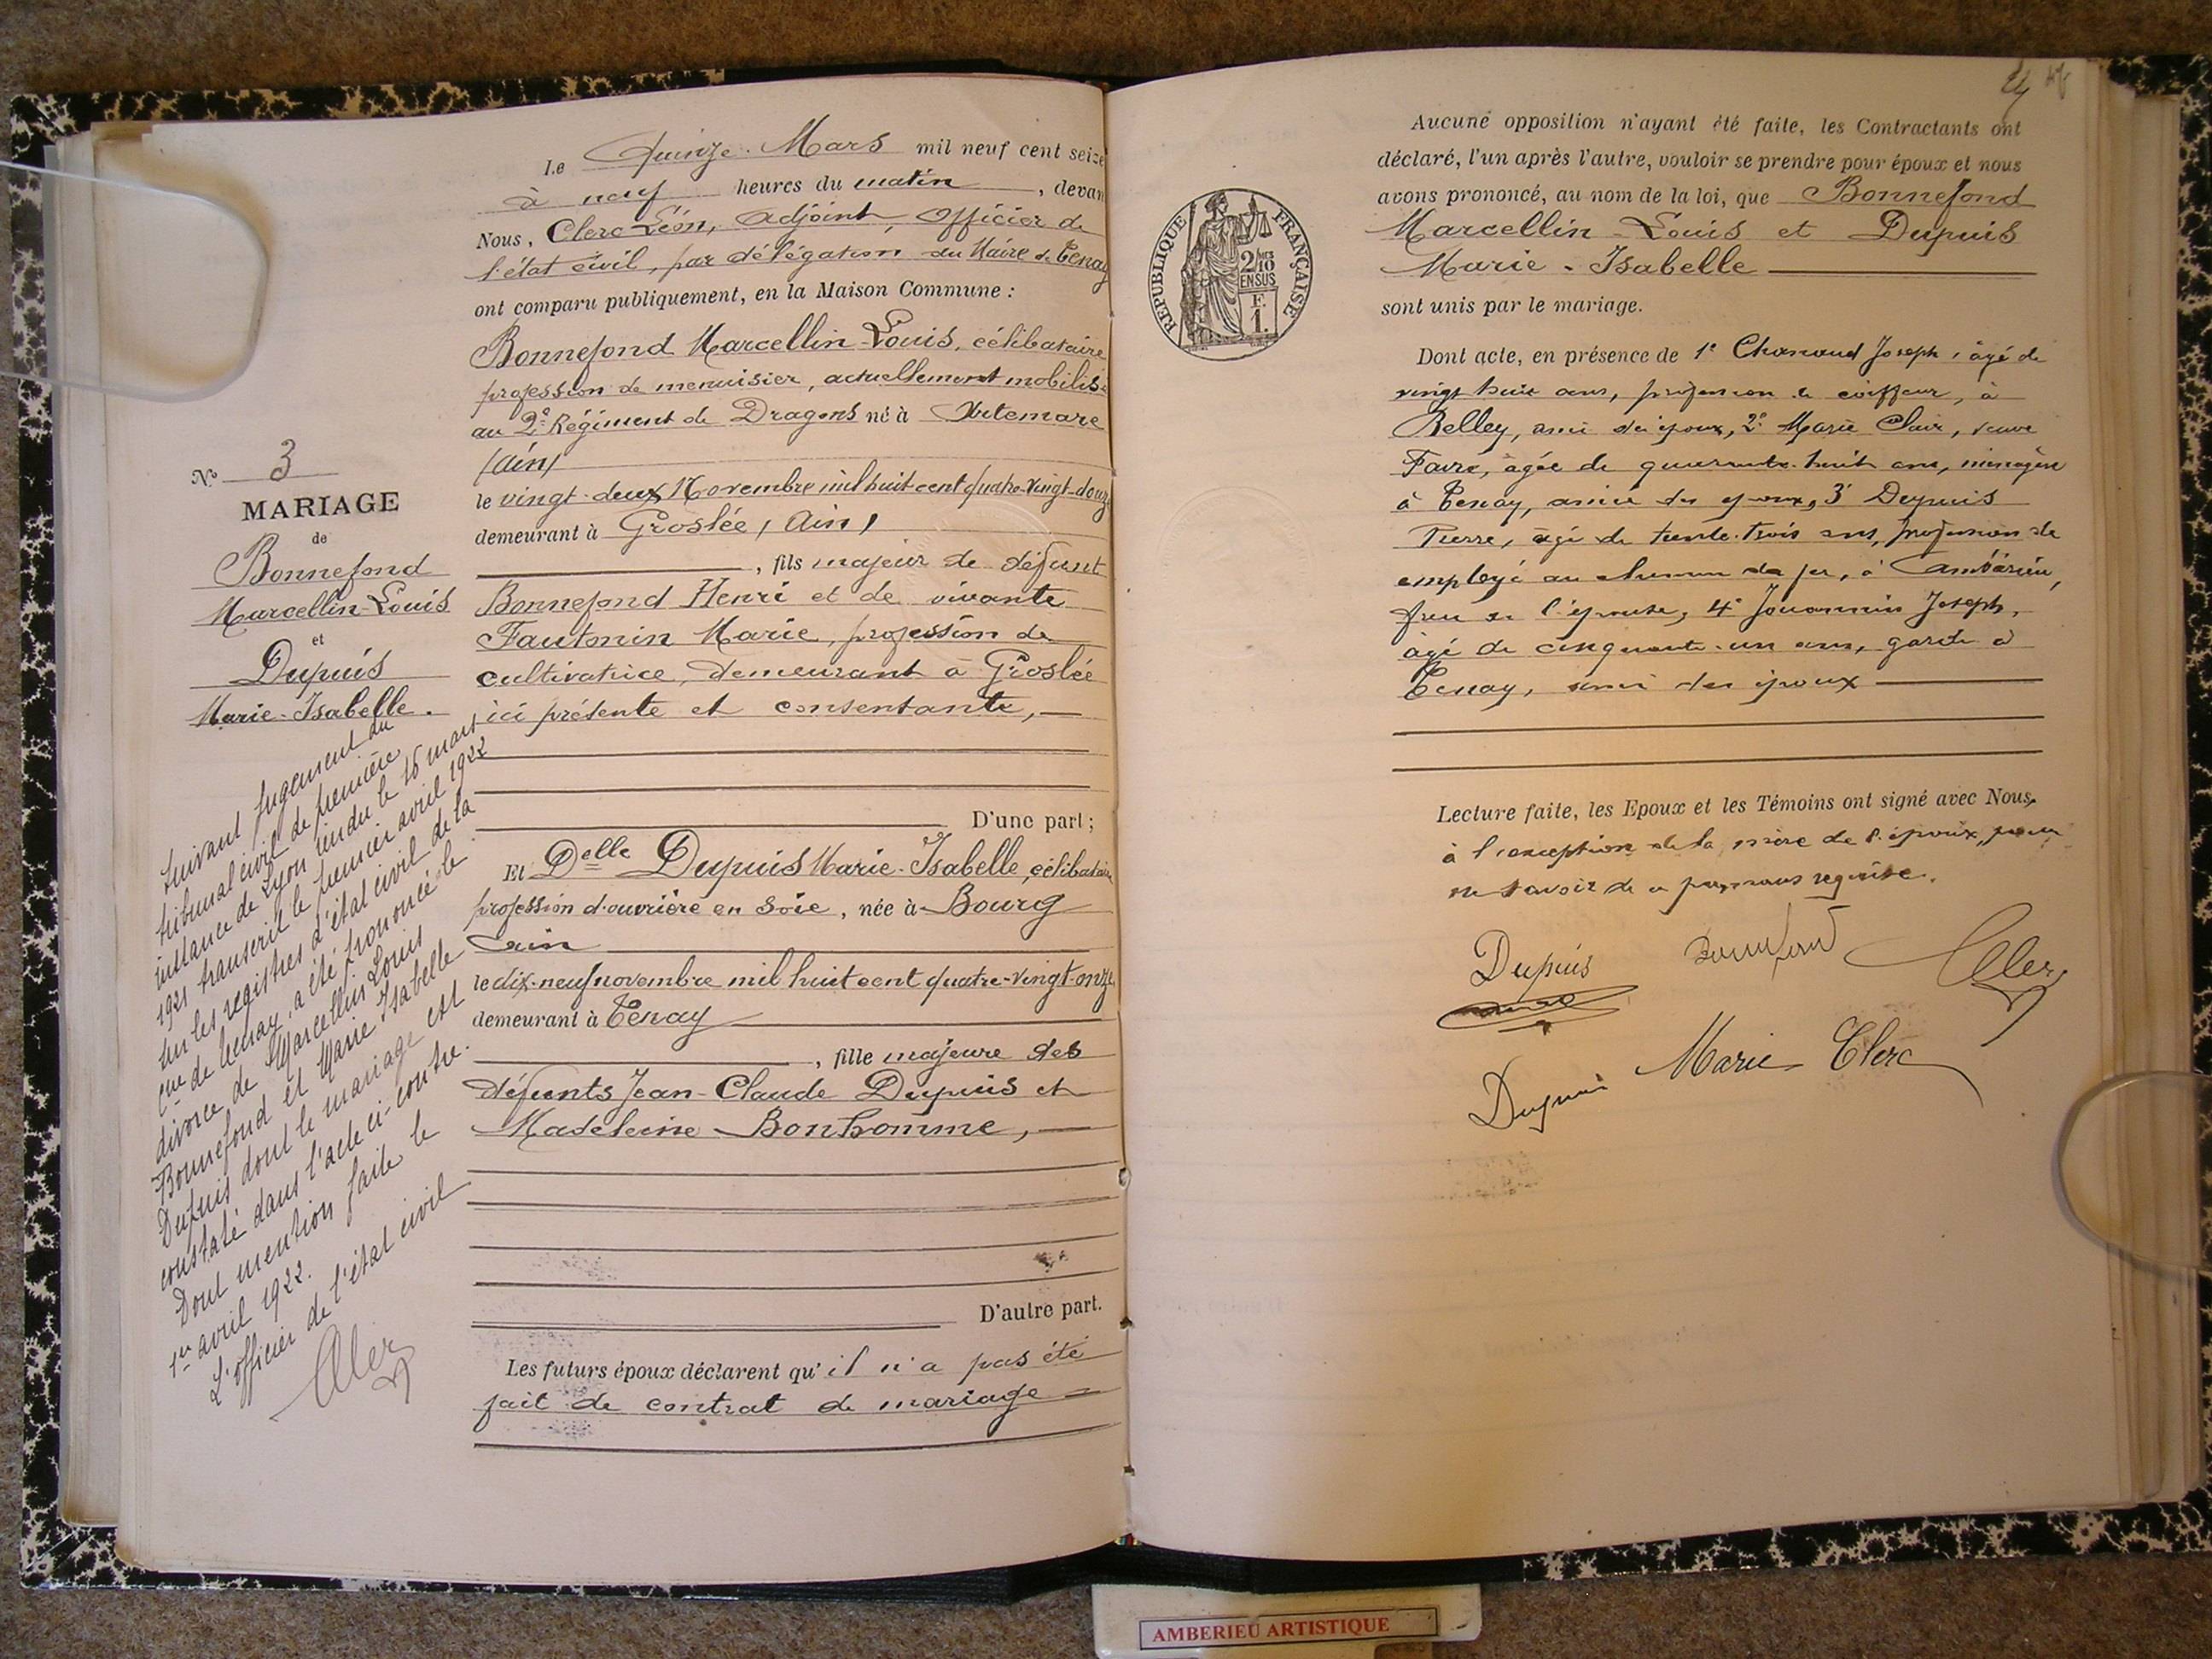 Le Quinze Mars mil neuf cent seize
à neuf heures du matin, devan
Nous, Clerc Léon, adjoint, Officier de
l'état civil, par délégation du Maire de Tenay
ont comparu publiquement, en la Maison Commune :
Bonnefond Marcellin-Louis, célibataire
profession de menuisier, actuellement mobilisé
au 2e Régiment de Dragons né à Artemare
(Ain)
le vingt-deux Novembre mil huit cent quatre-vingt-douze
demeurant à Groslée (Ain)
, fils majeur de défunt
Bonnefond Henri et de vivante
Fautonin Marie, profession de
cultivatrice, demeurant à Groslée
ici présente et consentante,
D'une part ;
Et Delle Dupuis Marie-Isabelle, célibataire
profession d'ouvrière en soie, née à Bourg
Ain
le dix-neuf novembre mil huit cent quatre-vingt-onze
demeurant à Tenay
, fille majeure des
défunts Jean-Claude Dupuis et
Madeleine Bonhomme,
D'autre part.
Les futurs époux déclarent qu'il n'a pas été
fait de contrat de mariage
No 3
MARIAGE
de
Bonnefond
Marcellin-Louis
et
Dupuis
Marie-Isabelle.
Suivant jugement du
tribunal civil de première
instance de Lyon rendu le 15 mars
1921 transcrit le premier avril 1922
sur les registres d'état civil de la
cne de Tenay, a été prononcé le
divorce de Marcellin Louis
Bonnefond et Marie Isabelle
Dupuis dont le mariage est
constaté dans l'acte ci-contre.
Dont mention faite le
1er avril 1922.
L'officier de l'état civil
Clerc
24
REPUBLIQUE FRANÇAISE
2/10
EN SUS
F.
1.
Aucune opposition n'ayant été faite, les Contractants ont
déclaré, l'un après l'autre, vouloir se prendre pour époux et nous
avons prononcé, au nom de la loi, que Bonnefond
Marcellin-Louis et Dupuis
Marie-Isabelle
sont unis par le mariage.
Dont acte, en présence de 1° Chanaud Joseph, âgé de
vingt huit ans, profession de coiffeur, à
Belley, ami des époux, 2° Marie Clair, veuve
Favre, âgée de quarante-huit ans, ménagère
à Tenay, amie des époux, 3° Dupuis
Pierre, âgé de trente-trois ans, profession de
employé au chemin de fer, à Ambérieu,
frère de l'épouse, 4° Jouannin Joseph,
âgé de cinquante-un ans, garde à
Tenay, ami des époux
Lecture faite, les Epoux et les Témoins ont signé avec Nous,
à l'exception de la mère de l'époux, pour
ne savoir de ce par nous requise.
Dupuis
Bonnefond
Clerc
Dupuis
Marie Clerc
AMBERIEU ARTISTIQUE